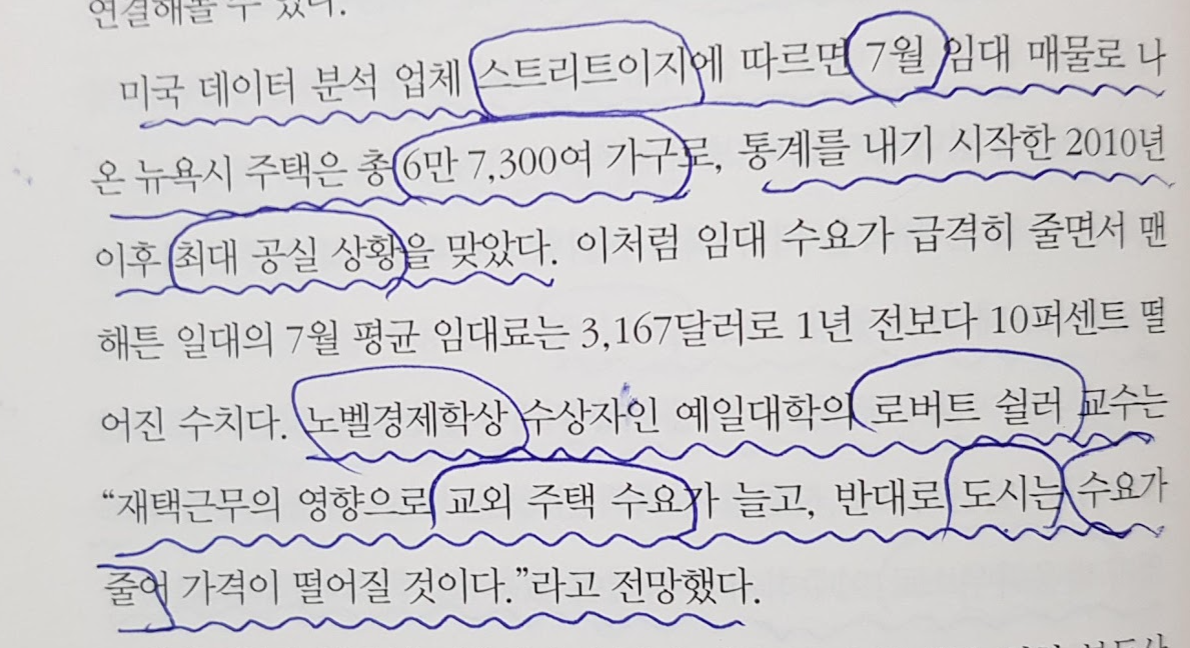 연결해볼 수 있다.
미국 데이터 분석 업체 스트리트이지에 따르면 7월 임대 매물로 나
온 뉴욕시 주택은 총 6만 7,300여 가구로, 통계를 내기 시작한 2010년
이후 최대 공실 상황을 맞았다. 이처럼 임대 수요가 급격히 줄면서 맨
해튼 일대의 7월 평균 임대료는 3,167달러로 1년 전보다 10퍼센트 떨
어진 수치다. 노벨경제학상 수상자인 예일대학의 로버트 쉴러 교수는
“재택근무의 영향으로 교외 주택 수요가 늘고, 반대로 도시는 수요가
줄어 가격이 떨어질 것이다.”라고 전망했다.